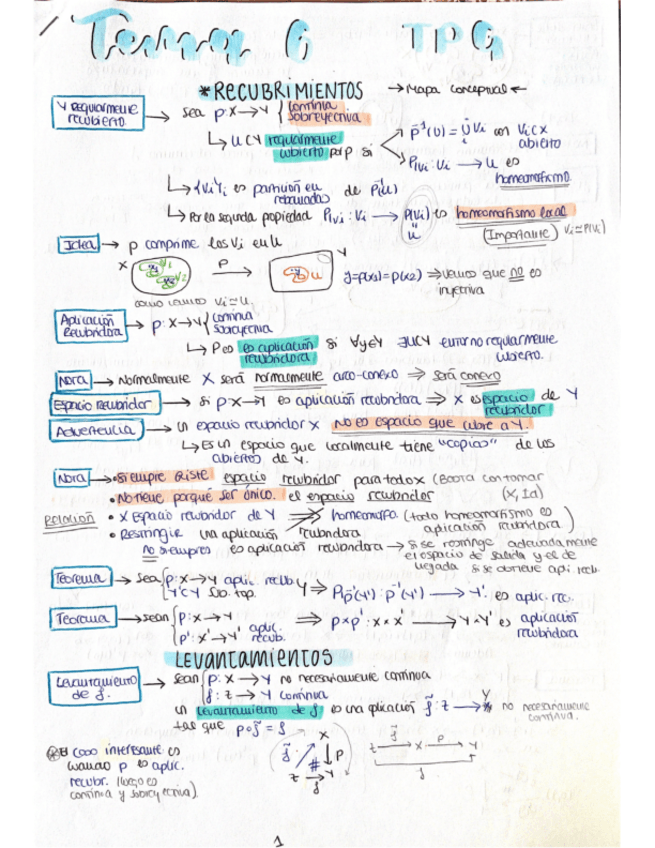 Tema 6 TPG
*RECUBRIMIENTOS → Mapa conceptual ←
Y regularmente recubierto → sea p: X → Y { continua
sobreyectiva
↳ U ⊂ Y regularmente cubierto por p si
p⁻¹(U) = ∪ᵢ Vᵢ con Vᵢ ⊂ X abierto
p|Vᵢ : Vᵢ → U es homeomorfismo
↳ {Vᵢ}ᵢ es partición en rebanadas de p⁻¹(U)
↳ Por la segunda propiedad p|Vᵢ : Vᵢ → p(Vᵢ) es homeomorfismo local
U (Importante) Vᵢ ≃ p(Vᵢ)
Idea → p comprime los Vᵢ en U
X p Y
V1 V2 U y=p(x1)=p(x2) ⇒ vemos que no es inyectiva
como vemos Vᵢ ≃ U
Aplicación Recubridora → p: X → Y { continua
sobreyectiva
↳ p es aplicación recubridora si ∀y∈Y ∃U⊂Y entorno regularmente cubierto.
Nota → Normalmente X será normalmente arco-conexo ⇒ será conexo
Espacio Recubridor → si p: X → Y es aplicación recubridora ⇒ X es espacio recubridor de Y
Advertencia → Un espacio recubridor X no es espacio que cubre a Y.
↳ Es un espacio que localmente tiene "copias" de los abiertos de Y.
Nota → • Siempre existe espacio recubridor para todo X (Basta con tomar (X, Id)
• No tiene porqué ser único. el espacio recubridor
Relación • X Espacio recubridor de Y ⇏ homeomorfo. (todo homeomorfismo es aplicación recubridora)
• Restringir una aplicación recubridora
no siempre es aplicación recubridora → si se restringe adecuadamente
el espacio de salida y el de
llegada si se obtiene apl. recub.
Teorema → Sea { p: X → Y aplic. recub.
Y' ⊂ Y Sub. top. ⇒ p|p⁻¹(Y') : p⁻¹(Y') → Y'. es aplic. rec.
Teorema → sean { p: X → Y
p': X' → Y' aplic. recub. ⇒ p×p' : X×X' → Y×Y' es aplicación recubridora
LEVANTAMIENTOS
Levantamiento de f. → sean { p: X → Y no necesariamente continua
f: Z → Y continua
Un levantamiento de f es una aplicación f̃: Z → X no necesariamente continua.
tal que p∘f̃ = f
El caso interesante es
cuando p es aplic.
recubr. (luego es
continua y sobreyectiva).
f̃ X p
Z f Y
Z f̃ X Y
f
1